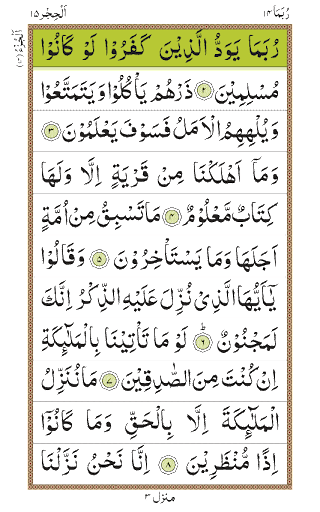 رُبَمَا ١٤
اَلْحِجْر ١٥
اَلْجُزْءُ (١٤)
رُبَمَا يَوَدُّ الَّذِيْنَ كَفَرُوْا لَوْ كَانُوْا
مُسْلِمِيْنَ ۝٢ ذَرْهُمْ يَاْكُلُوْا وَيَتَمَتَّعُوْا
وَيُلْهِهِمُ الْاَمَلُ فَسَوْفَ يَعْلَمُوْنَ ۝٣
وَمَاۤ اَهْلَكْنَا مِنْ قَرْيَةٍ اِلَّا وَلَهَا
كِتَابٌ مَّعْلُوْمٌ ۝٤ مَا تَسْبِقُ مِنْ اُمَّةٍ
اَجَلَهَا وَمَا يَسْتَاْخِرُوْنَ ۝٥ وَقَالُوْا
يٰۤاَيُّهَا الَّذِيْ نُزِّلَ عَلَيْهِ الذِّكْرُ اِنَّكَ
لَمَجْنُوْنٌ ۝٦ؕ لَوْ مَا تَاْتِيْنَا بِالْمَلٰٓئِكَةِ
اِنْ كُنْتَ مِنَ الصّٰدِقِيْنَ ۝٧ مَا نُنَزِّلُ
الْمَلٰٓئِكَةَ اِلَّا بِالْحَقِّ وَمَا كَانُوْۤا
اِذًا مُّنْظَرِيْنَ ۝٨ اِنَّا نَحْنُ نَزَّلْنَا
منزل ٣